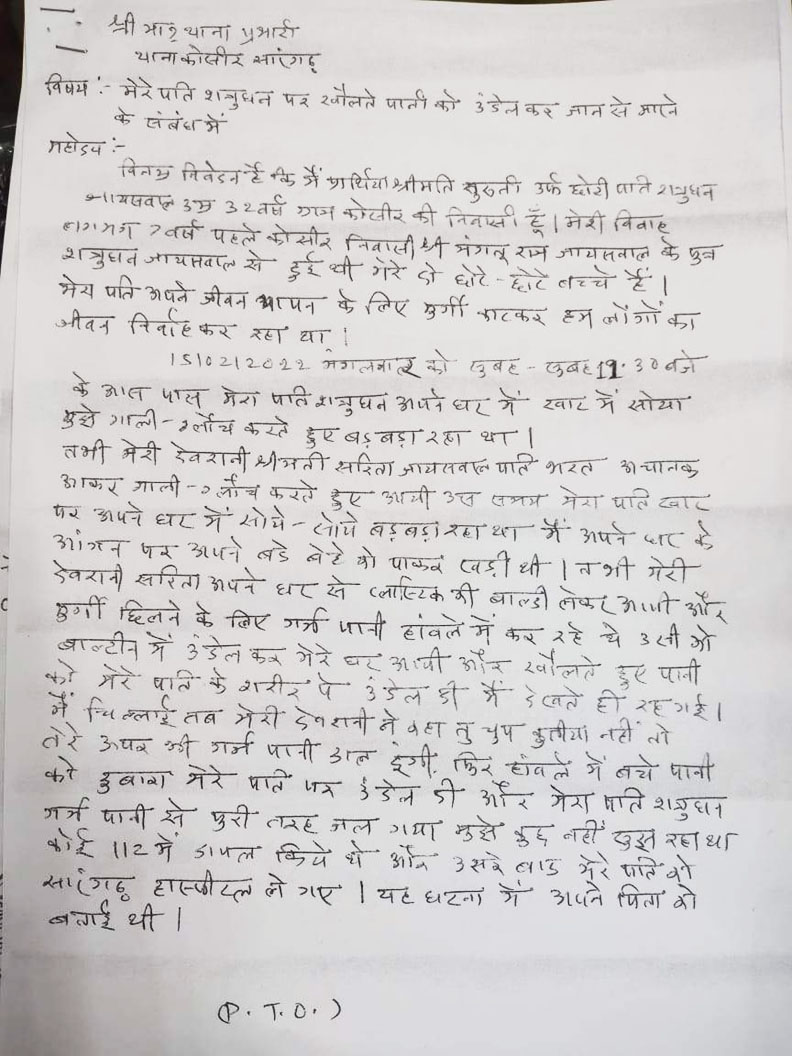 श्री मान् थाना प्रभारी
थाना कोसीर सारंगढ़
विषय :- मेरे पति शत्रुधन पर खौलते पानी को उंडेल कर जान से मारने
के संबंध में
महोदय :-
विनम्र निवेदन है कि मैं प्रार्थिया श्रीमति सुरुती उर्फ छोटी पति शत्रुधन
जायसवाल उम्र 32 वर्ष ग्राम कोसीर की निवासी हूँ। मेरी विवाह
लगभग 7 वर्ष पहले कोसीर निवासी श्री मंगलू राम जायसवाल के पुत्र
शत्रुधन जायसवाल से हुई थी मेरे दो छोटे-छोटे बच्चे हैं।
मेरा पति अपने जीवन यापन के लिए मुर्गी काटकर हम लोगों का
जीवन निर्वाह कर रहा था।
15/02/2022 मंगलवार को सुबह-सुबह 11.30 बजे
के आस पास मेरा पति शत्रुधन अपने घर में खाट में सोया
मुझे गाली-गलौच करते हुए बड़बड़ा रहा था।
तभी मेरी देवरानी श्रीमती सरिता जायसवाल पति भरत अचानक
आकर गाली-गलौच करते हुए आयी उस समय मेरा पति खाट
पर अपने घर में सोये-सोये बड़बड़ा रहा था मैं अपने घर के
आंगन पर अपने बडे बेटे को पाकर खड़ी थी। तभी मेरी
देवरानी सरिता अपने घर से प्लास्टिक की बाल्टी लेकर आयी और
मुर्गी छिलने के लिए गर्म पानी हांवले में कर रहे थे उसी को
बाल्टीन में उंडेल कर मेरे घर आयी और खौलते हुए पानी
को मेरे पति के शरीर पे उंडेल दी मैं देखते ही रह गई।
मैं चिल्लाई तब मेरी देवरानी ने कहा तु चुप कुतीया नहीं तो
तेरे ऊपर भी गर्म पानी डाल दूंगी, फिर हांवले में बचे पानी
को दुबारा मेरे पति पर उंडेल दी और मेरा पति शत्रुधन
गर्म पानी से पुरी तरह जल गया मुझे कुछ नहीं सुझ रहा था
कोई 112 में डायल किये थे और उसके बाद मेरे पति को
सारंगढ़ हास्पीटल ले गए। यह घटना मैं अपने पिता को
बताई थी।
(P. T. O.)